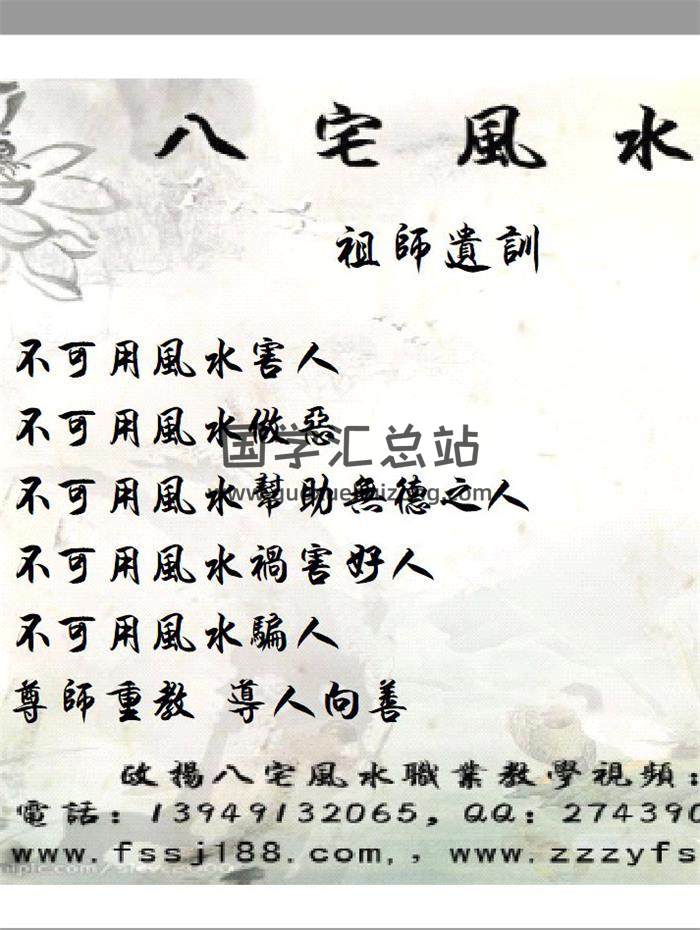 八宅風水
祖師遺訓
不可用風水害人
不可用風水做惡
国学汇总站
不可用風水幫助無德之人
www.guoxuehuizong.com
不可用風水禍害好人
不可用風水騙人
尊師重教 導人向善
政揚八宅風水職業教學視頻:
電話: 13949132065, QQ: 274390
www.fssj188.com,, www.zzzyfs